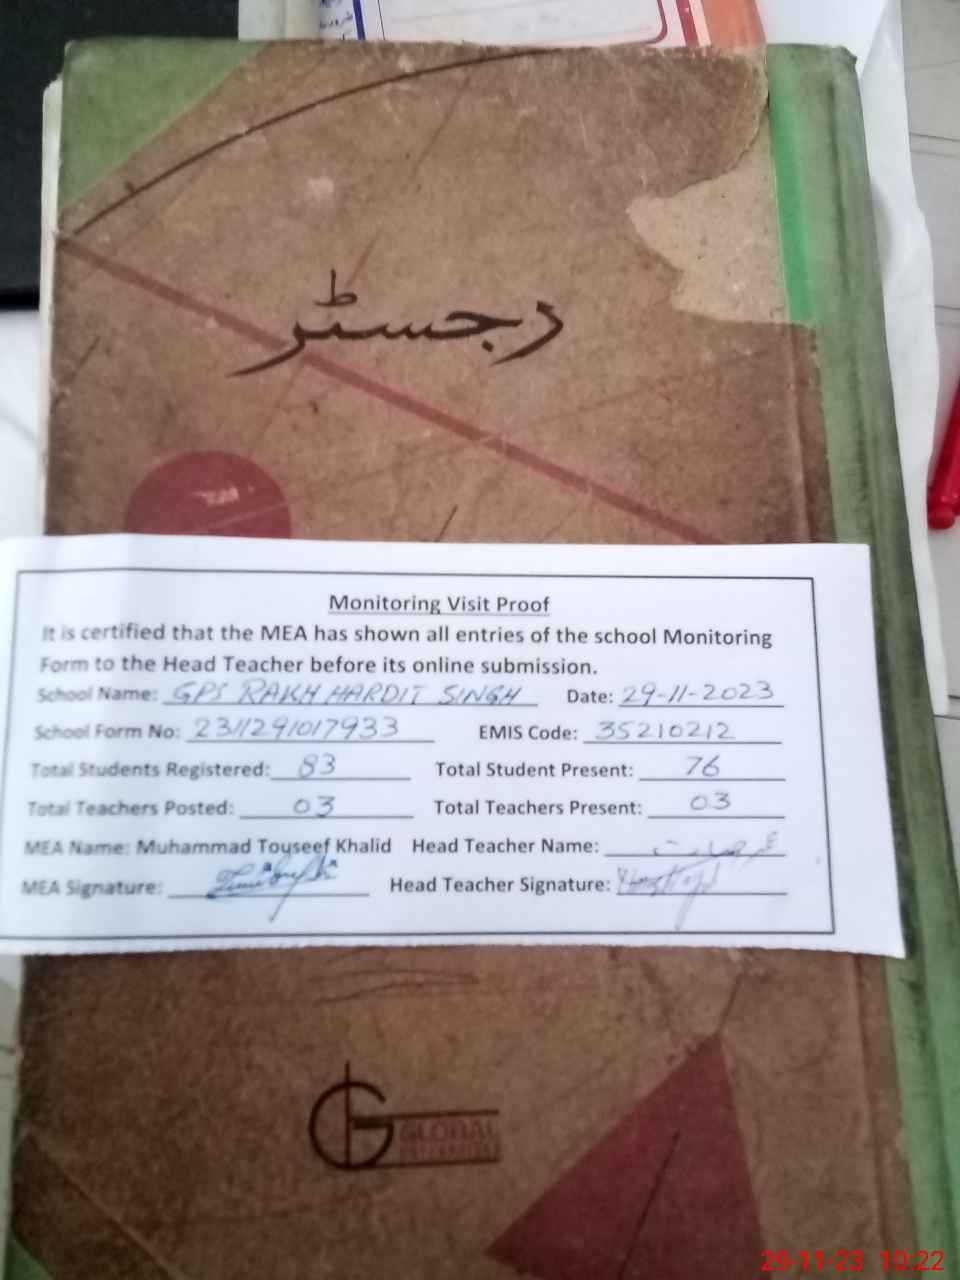 رجسٹر
Monitoring Visit Proof
It is certified that the MEA has shown all entries of the school Monitoring
Form to the Head Teacher before its online submission.
School Name: GPS RAKH HARDIT SINGH Date: 29-11-2023
School Form No: 2311291017933 EMIS Code: 35210212
Total Students Registered: 83 Total Student Present: 76
Total Teachers Posted: 03 Total Teachers Present: 03
MEA Name: Muhammad Touseef Khalid Head Teacher Name:
MEA Signature: Head Teacher Signature:
GLOBAL
29-11-23 10:22